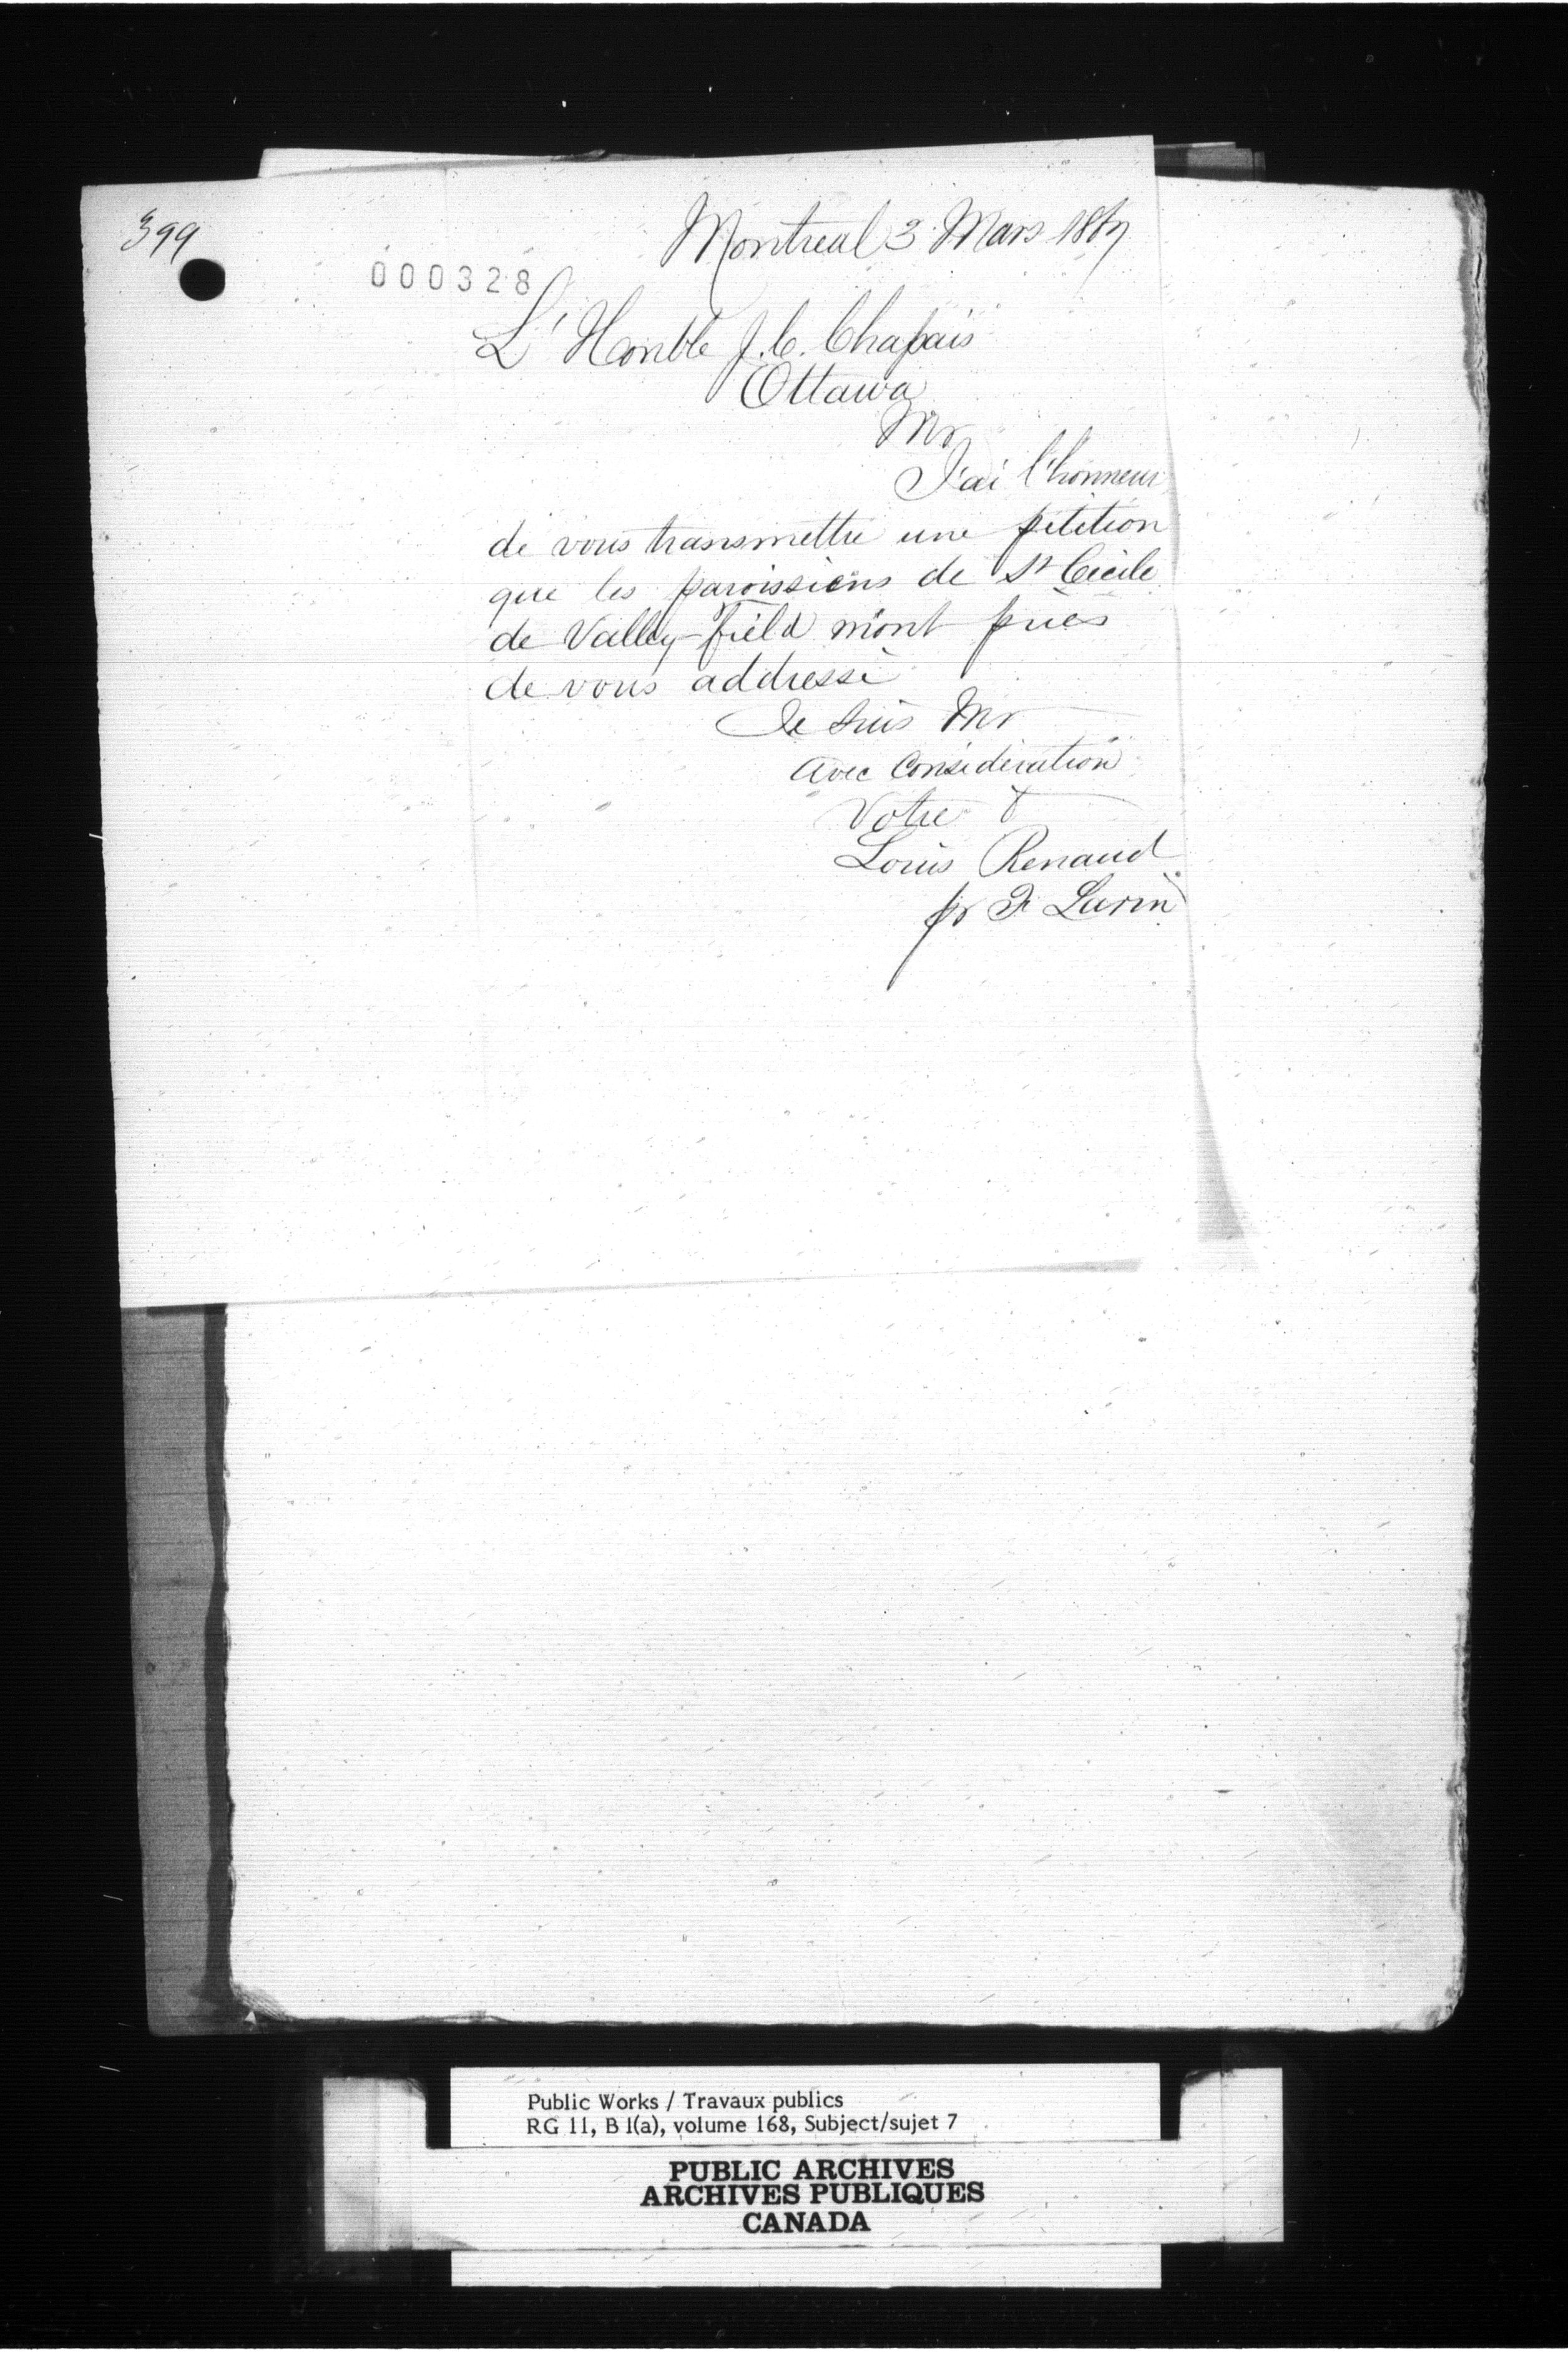 399
000328
Montreal 3 Mars 1867
L'Honble J. C. Chapais
Ottawa
Mr
J'ai l'honneur
de vous transmettre une pétition
que les paroissiens de St Cecile
de Valley-field m'ont priés
de vous addressé
Je suis Mr
avec Considération
Votre &
Louis Renaud
pr F Larin
Public Works / Travaux publics
RG 11, B 1(a), volume 168, Subject/sujet 7
PUBLIC ARCHIVES
ARCHIVES PUBLIQUES
CANADA